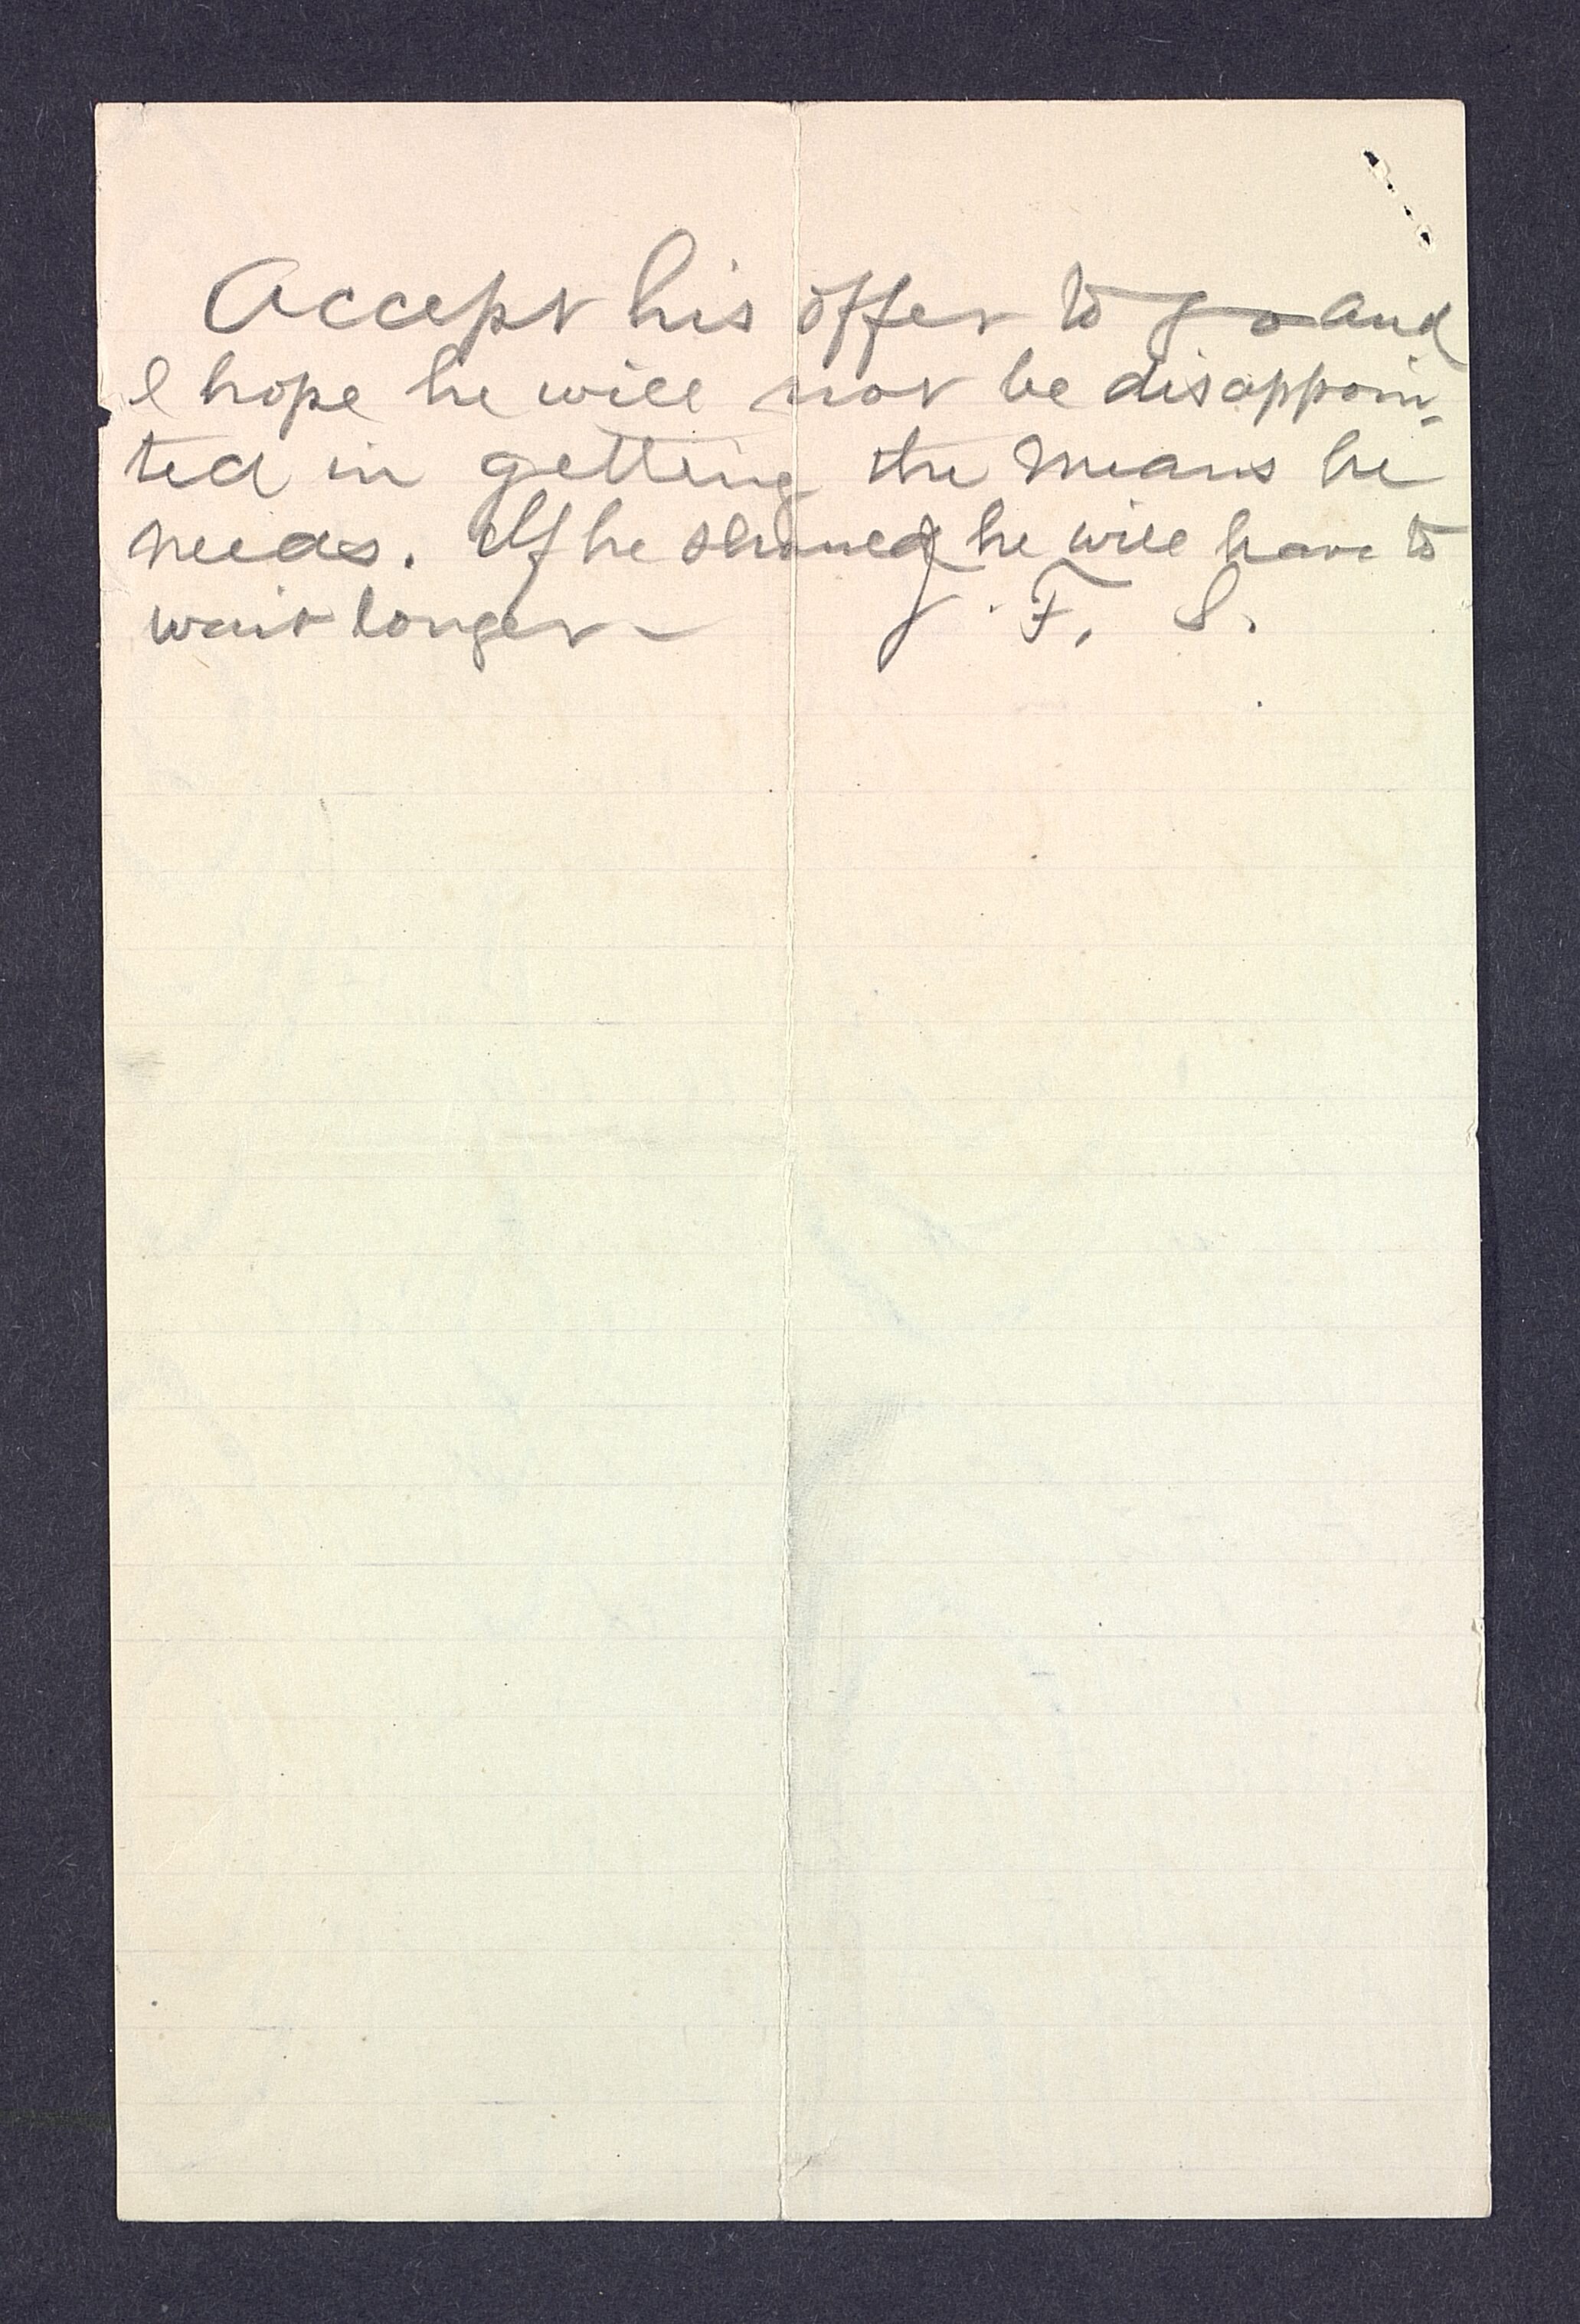 Accept his offer to go and
I hope he will not be disappoin-
ted in getting the means he
needs. If he should he will have to
wait longer - J. F. S.